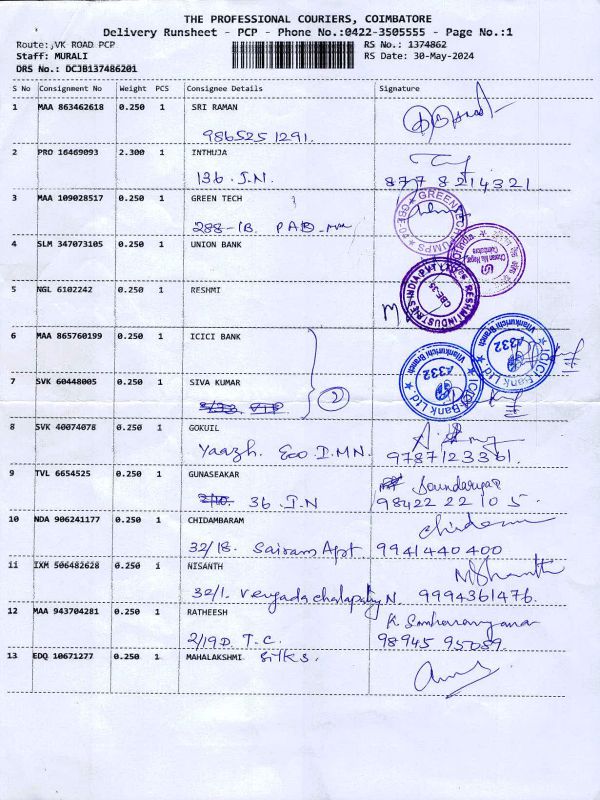 THE PROFESSIONAL COURIERS, COIMBATORE
Delivery Runsheet - PCP - Phone No.:0422-3505555 - Page No.:1
Route:,VK ROAD PCP RS No.: 1374862
Staff: MURALI RS Date: 30-May-2024
DRS No.: DCJB137486201
S No Consignment No Weight PCS Consignee Details Signature
1 MAA 863462618 0.250 1 SRI RAMAN
9865251291.
2 PRO 16469093 2.300 1 INTHUJA
136. J.N. 877 8214321
3 MAA 109028517 0.250 1 GREEN TECH
288-1B. PAD
4 SLM 347073105 0.250 1 UNION BANK
5 NGL 6102242 0.250 1 RESHMI
RESHMI INDUSTRIES INDIA PVT
CBE-35
6 MAA 865760199 0.250 1 ICICI BANK
ICICI Bank Ltd.
Vilankurichi Branch
A332
7 SVK 60448005 0.250 1 SIVA KUMAR
2
ICICI Bank Ltd.
Vilankurichi Branch
A332
8 SVK 40074078 0.250 1 GOKUIL
Yaazh. Eco D.MN. 9787123361.
9 TVL 6654525 0.250 1 GUNASEAKAR Soundarya
36. J.N 98422 22105.
10 NDA 906241177 0.250 1 CHIDAMBARAM
32/18. Sairam Apt 9941440400
11 IXM 506482628 0.250 1 NISANTH
32/1. Vengadachalapathy N. 9994361476.
12 MAA 943704281 0.250 1 RATHEESH
2/19D T.C. 98945 95059.
13 EDQ 10671277 0.250 1 MAHALAKSHMI silks.